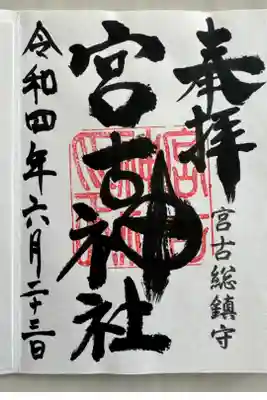 奉拝
宮古総鎮守
宮古神社
令和四年六月二十三日